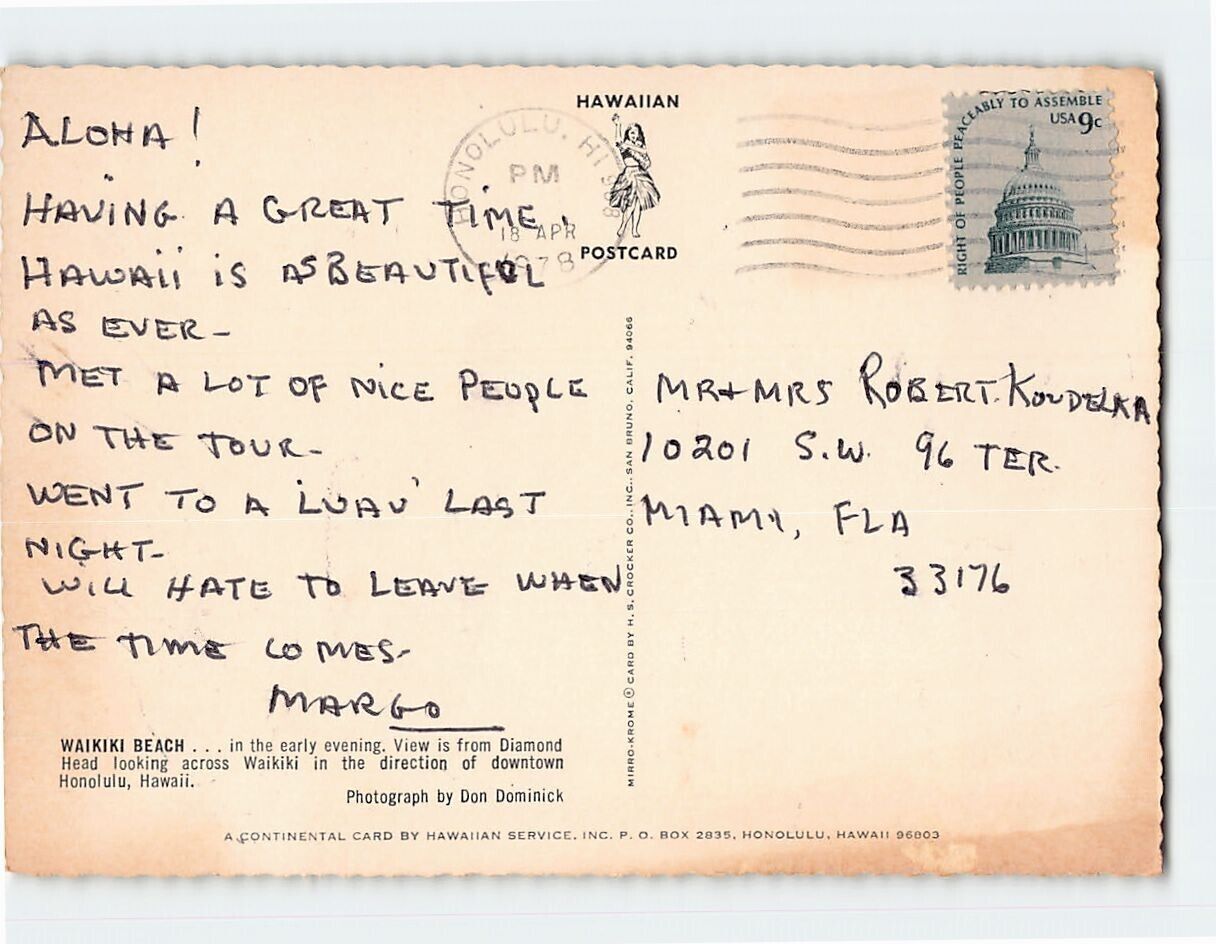 HAWAIIAN
POSTCARD
HONOLULU, HI
PM
18 APR
1978
RIGHT OF PEOPLE PEACEABLY TO ASSEMBLE
USA 9c
ALOHA!
HAVING A GREAT TIME,
HAWAII IS AS BEAUTIFUL
AS EVER-
MET A LOT OF NICE PEOPLE
ON THE TOUR-
WENT TO A 'LUAU' LAST
NIGHT-
WILL HATE TO LEAVE WHEN
THE TIME COMES-
MARGO
MR+MRS ROBERT KOUDELKA
10201 S.W. 96 TER.
MIAMI, FLA
33176
MIRRO-KROME ® CARD BY H. S. CROCKER CO., INC., SAN BRUNO, CALIF. 94066
WAIKIKI BEACH . . . in the early evening. View is from Diamond
Head looking across Waikiki in the direction of downtown
Honolulu, Hawaii.
Photograph by Don Dominick
A CONTINENTAL CARD BY HAWAIIAN SERVICE, INC. P. O. BOX 2835, HONOLULU, HAWAII 96803